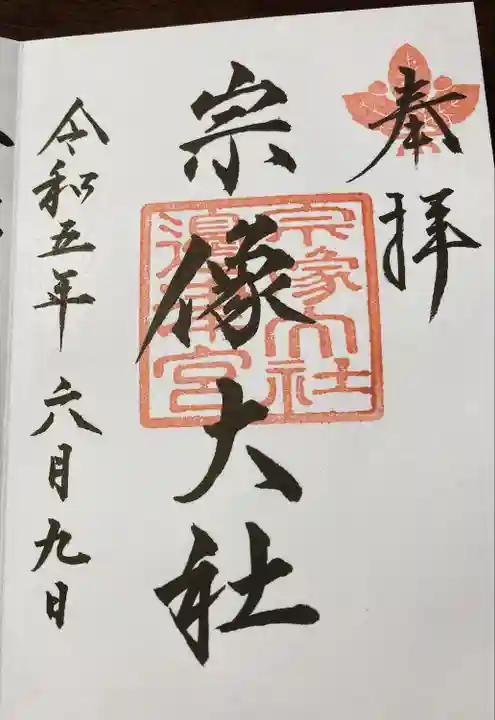 奉拝
宗像大社
宗像大社
邊津宮
令和五年六月九日